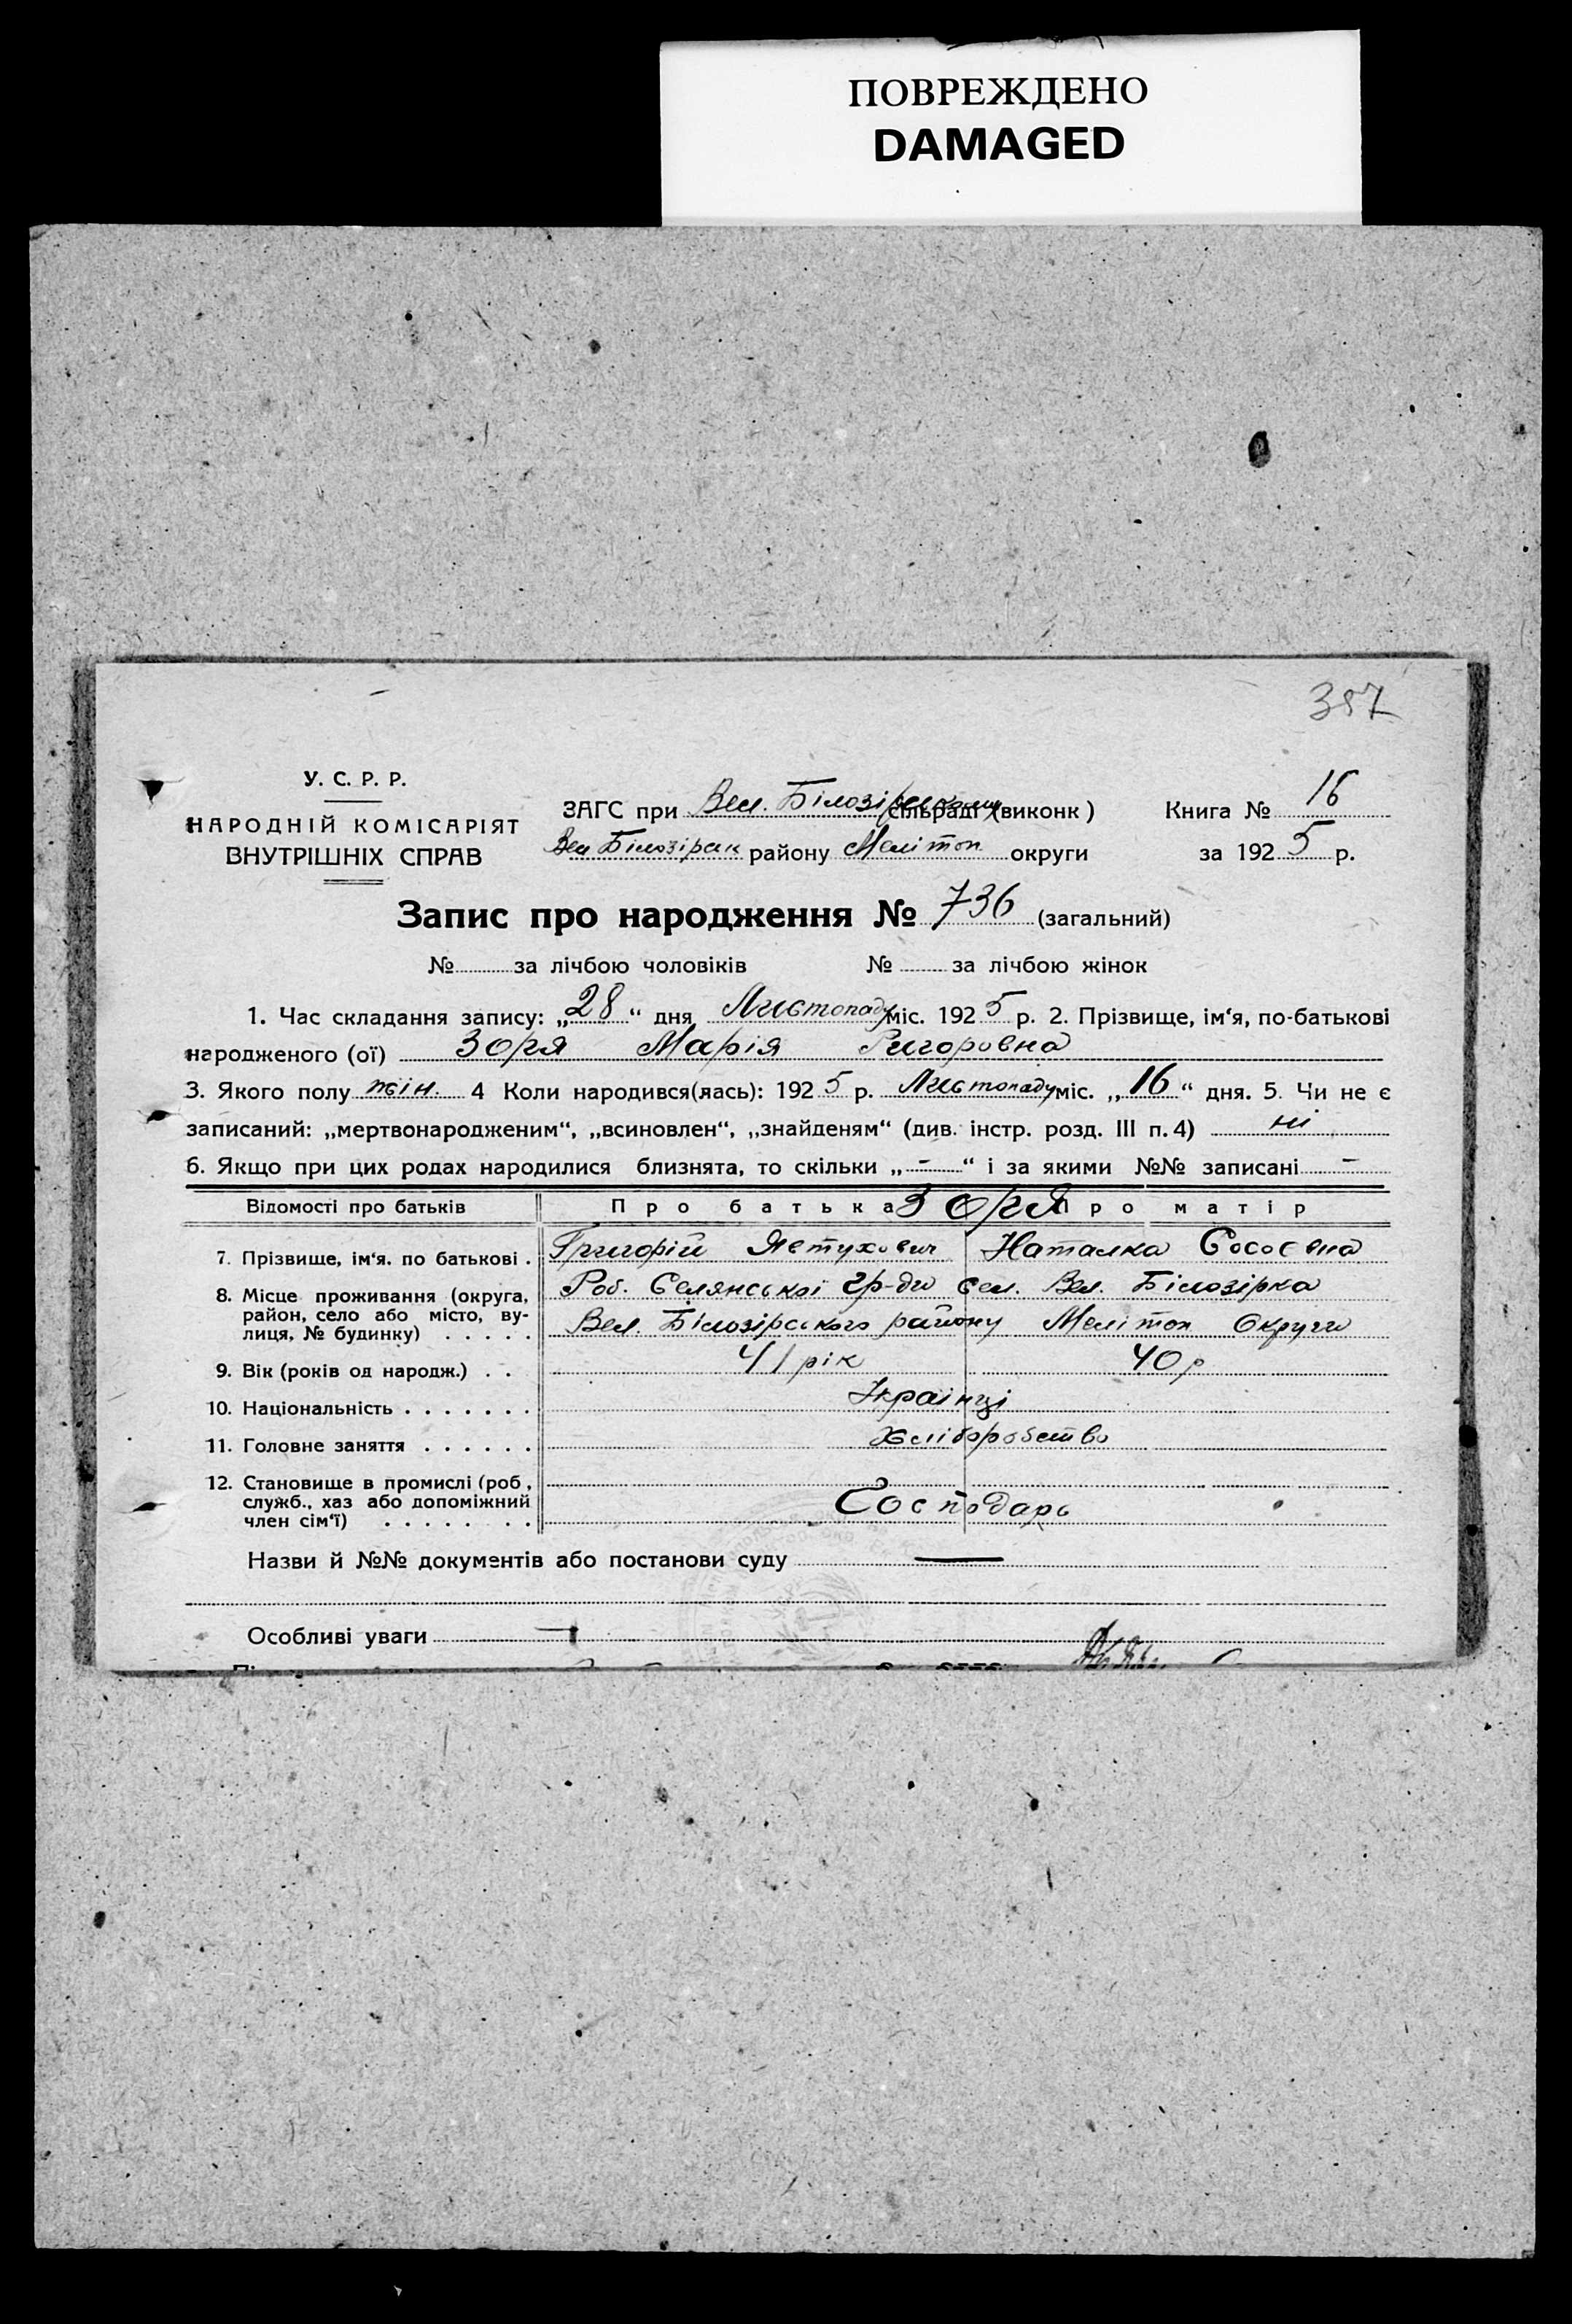 ПОВРЕЖДЕНО
DAMAGED
387
У. С. Р. Р.
НАРОДНІЙ КОМІСАРІЯТ
ВНУТРІШНІХ СПРАВ
ЗАГС при Вел. Білозірському сільраді (виконк) Книга № 16
Вел Білозірск району Мелітоп округи за 1925 р.
Запис про народження № 736 (загальний)
№ за лічбою чоловіків № за лічбою жінок
1. Час складання запису: „28“ дня Листопаду міс. 1925 р. 2. Прізвище, ім‘я, по-батькові
народженого (ої) Зоря Марія Григоровна
3. Якого полу жін. 4 Коли народився(лась): 1925 р. Листопаду міс. „16“ дня. 5. Чи не є
записаний: „мертвонародженим“, „всиновлен“, „знайденям“ (див. інстр. розд. III п. 4) ні
6. Якщо при цих родах народилися близнята, то скільки „-“ і за якими №№ записані -
Відомості про батьків Про батька Зоря Про матір
7. Прізвище, ім‘я. по батькові . Григорій Явтухович Наталка Сосоєвна
8. Місце проживання (округа, Роб. Селянської гр-ди сел. Вел. Білозірка
район, село або місто, ву-
лиця, № будинку) . . . . . Вел. Білозірського району Мелітоп Округи
9. Вік (років од народж.) . . 41 рік 40 р
10. Національність . . . . . . . Українці
11. Головне заняття . . . . . . Хліборобство
12. Становище в промислі (роб ,
служб., хаз або допоміжний Господарь
член сім‘ї) . . . . . . .
Назви й №№ документів або постанови суду —
Особливі уваги